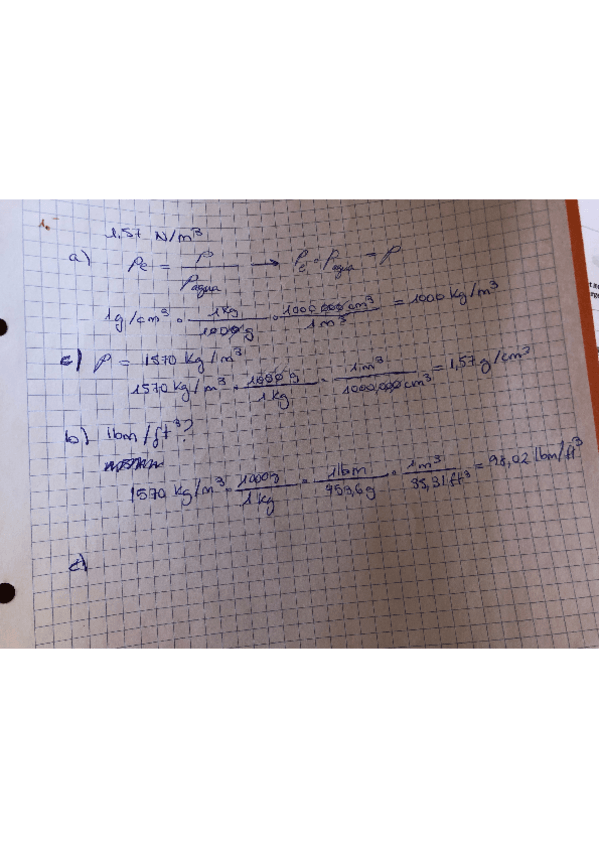 1.-
1,57 N/m³
a) ρe = ρ / ρagua → ρe · ρagua = ρ
1g/cm³ · 1kg / 1000g · 1000000cm³ / 1m³ = 1000 kg/m³
c) ρ = 1570 kg/m³
1570 kg/m³ · 1000g / 1kg · 1m³ / 1000,000cm³ = 1,57g/cm³
b) lbm/ft³?
1570 kg/m³ · 1000g / 1kg · 1lbm / 453,6g · 1m³ / 35,31ft³ = 98,02 lbm/ft³
d)